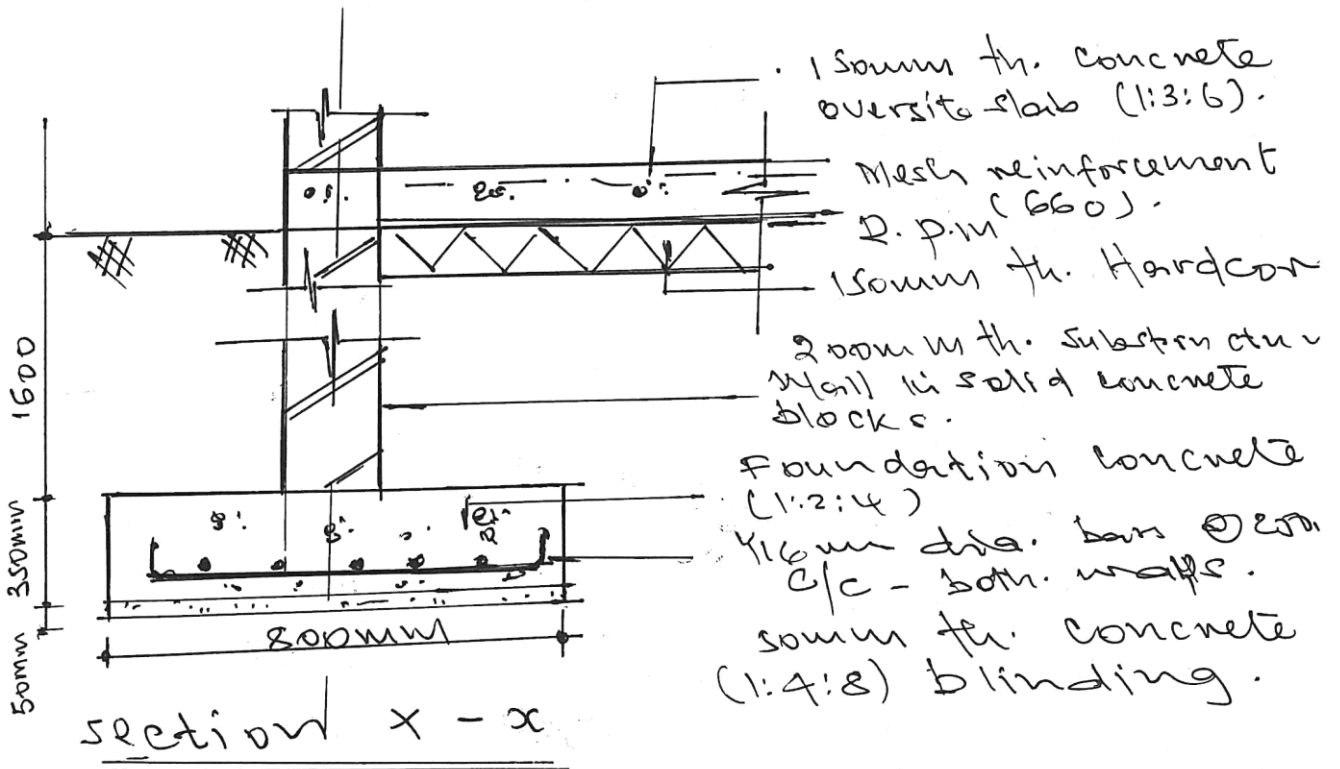 150mm th. concrete
oversite slab (1:3:6).
Mesh reinforcement
(660).
D.p.m
150mm th. Hardcor
200mm th. substructu
wall in solid concrete
blocks.
Foundation concrete
(1:2:4)
Y16mm dia. bars @ 200
c/c - both ways.
50mm th. concrete
(1:4:8) blinding.
1600
350mm
50mm
800mm
section x - x